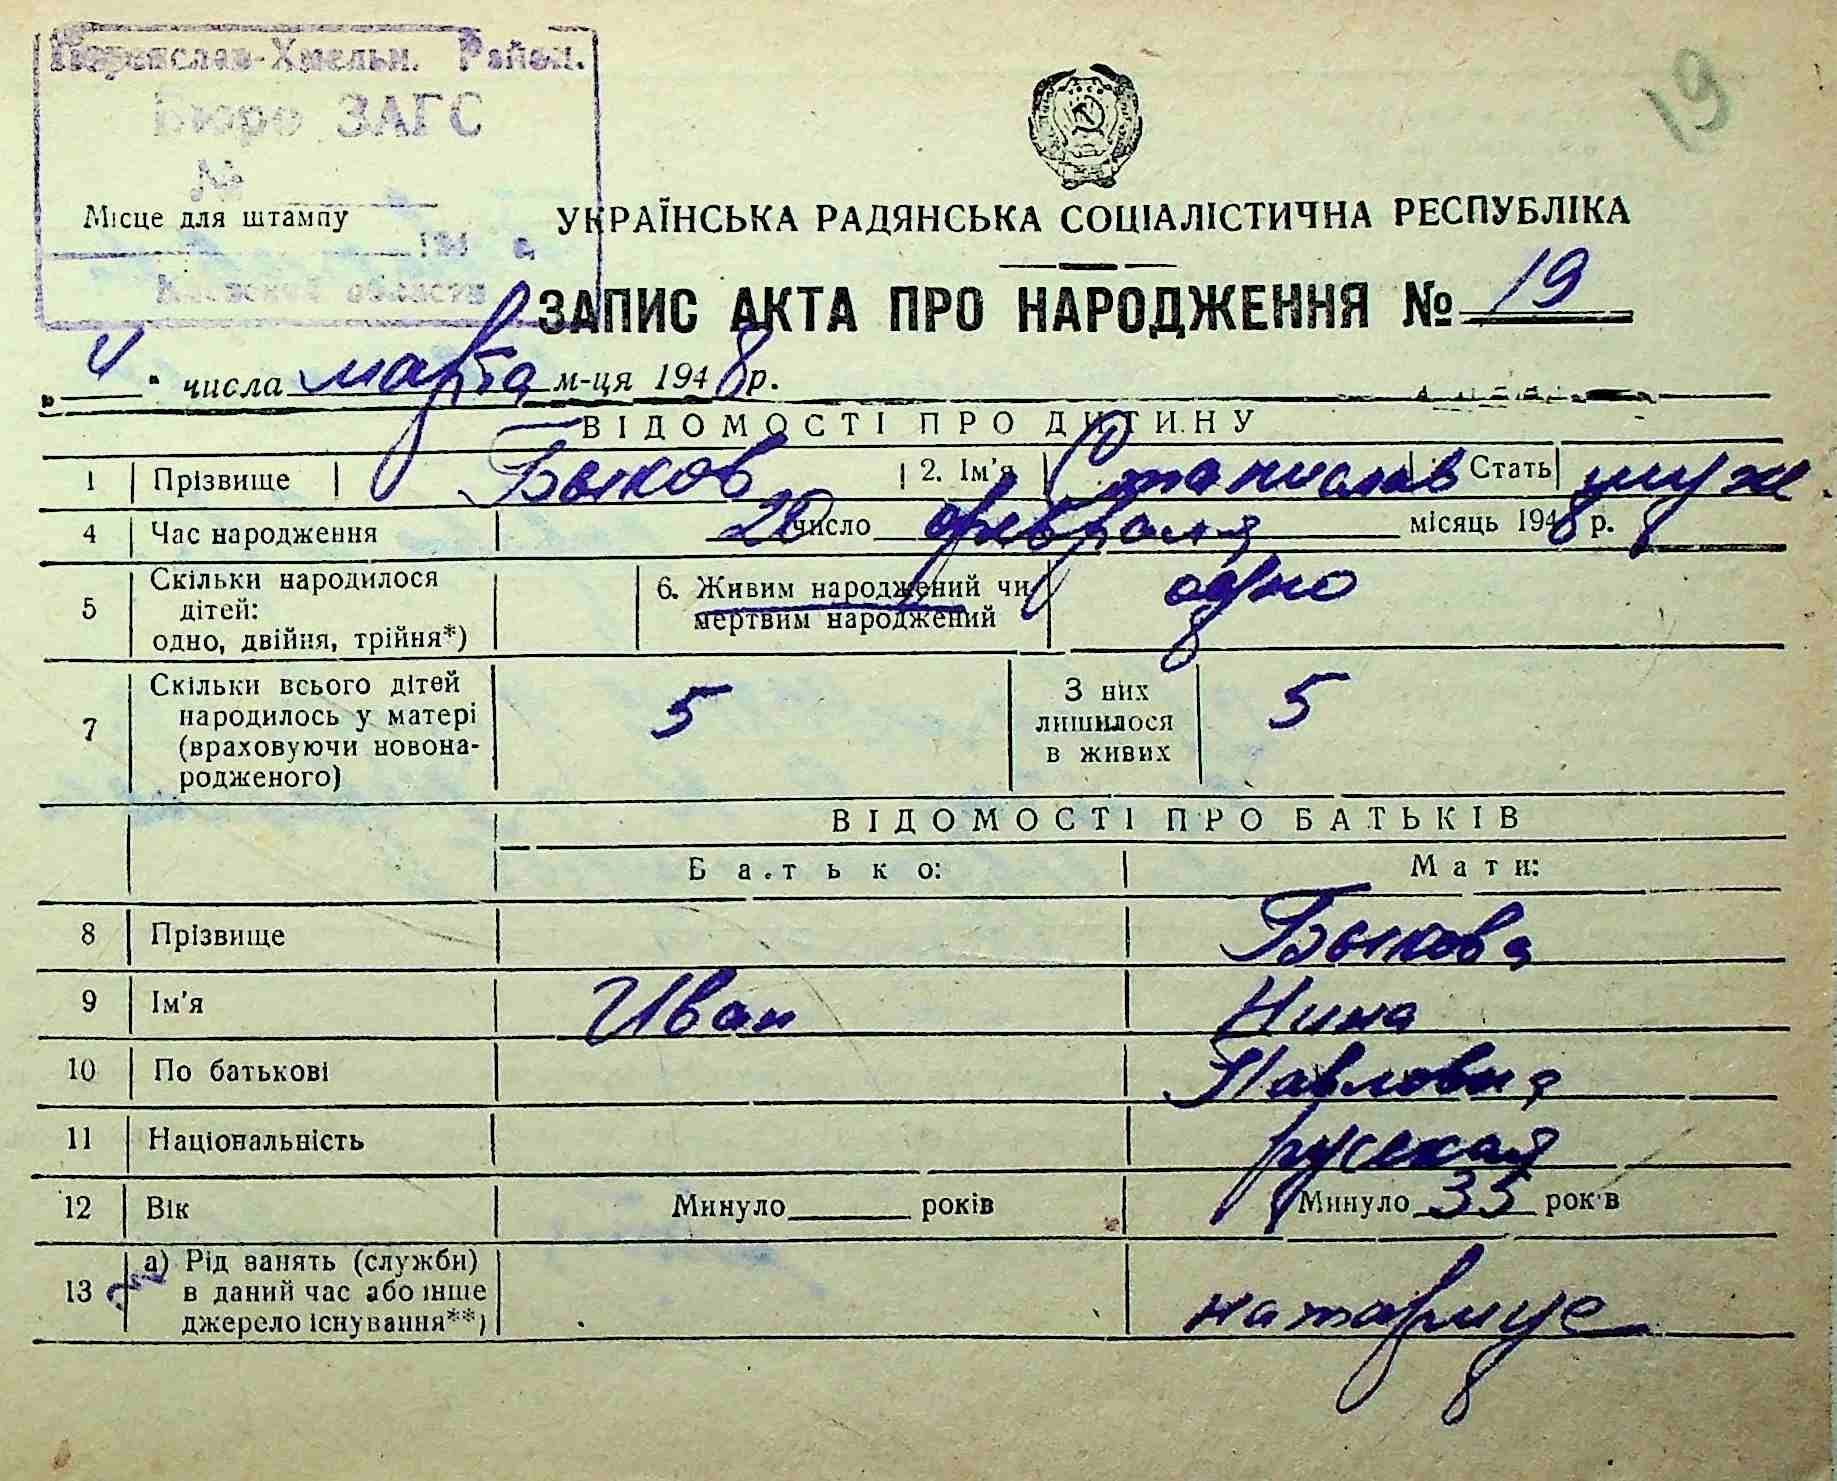 19
Переяслав-Хмельн. Район.
Бюро ЗАГС
№
Місце для штампу
194 г.
Киевской области
УКРАЇНСЬКА РАДЯНСЬКА СОЦІАЛІСТИЧНА РЕСПУБЛІКА
ЗАПИС АКТА ПРО НАРОДЖЕННЯ № 19
„4" числа марта м-ця 1948 р.
ВІДОМОСТІ ПРО ДИТИНУ
1 Прізвище Быков 2. Ім'я Станислав Стать муж.
4 Час народження 20 число февраля місяць 1948 р.
5 Скільки народилося дітей: одно, двійня, трійня*) 6. Живим народжений чи мертвим народжений одно
7 Скільки всього дітей народилось у матері (враховуючи новонародженого) 5 З них лишилося в живих 5
ВІДОМОСТІ ПРО БАТЬКІВ
Батько: Мати:
8 Прізвище Быкова
9 Ім'я Иван Нина
10 По батькові Павловна
11 Національність русская
12 Вік Минуло рокiв Минуло 35 рок в
13 а) Рід занять (служби) в даний час або інше джерело існування**) натариус